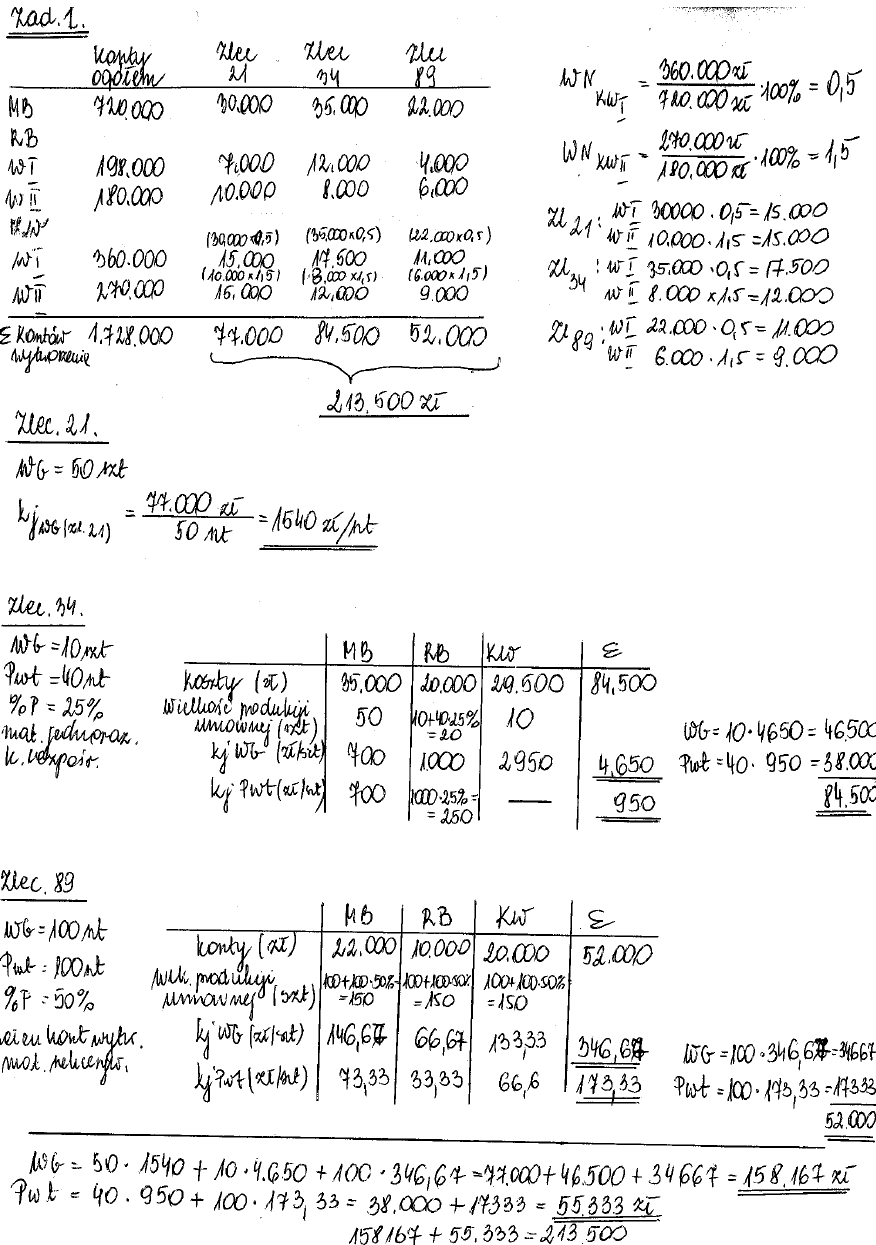 Zad. 1.
Koszty ogółem Zlec 21 Zlec 34 Zlec 89
MB 720.000 30.000 35.000 22.000
RB
W I 198.000 7.000 12.000 4.000
W II 180.000 10.000 8.000 6.000
KW
(30.000 x 0,5) (35.000 x 0,5) (22.000 x 0,5)
W I 360.000 15.000 17.500 11.000
(10.000 x 1,5) (8.000 x 1,5) (6.000 x 1,5)
W II 270.000 15.000 12.000 9.000
Σ Kosztów wytworzenie 1.728.000 77.000 84.500 52.000
213.500 zł
WN KW I = 360.000 zł / 720.000 zł · 100% = 0,5
WN KW II = 270.000 zł / 180.000 zł · 100% = 1,5
Zl 21 : W I 30000 · 0,5 = 15.000
W II 10.000 · 1,5 = 15.000
Zl 34 : W I 35.000 · 0,5 = 17.500
W II 8.000 x 1,5 = 12.000
Zl 89 : W I 22.000 · 0,5 = 11.000
W II 6.000 · 1,5 = 9.000
Zlec. 21.
WG = 50 szt
kj WG (zl. 21) = 77.000 zł / 50 szt = 1540 zł/szt
Zlec. 34.
WG = 10 szt
Pwt = 40 szt
%P = 25%
mat. jednoraz.
k. bezpośr.
MB RB KW Σ
Koszty (zł) 35.000 20.000 29.500 84,500
Wielkość produkcji umownej (szt) 50 10+40·25% = 20 10
kj WG (zł/szt) 700 1.000 2950 4.650
kj Pwt (zł/szt) 700 1000·25% = = 250 — 950
WG = 10 · 4650 = 46500
Pwt = 40 · 950 = 38.000
84.500
Zlec. 89
WG = 100 szt
Pwt = 100 szt
%P = 50%
mat.
MB RB KW Σ
koszty (zł) 22.000 10.000 20.000 52.000
Wlk. produkcji umownej (szt) 100+100·50% = 150 100+100·50% = 150 100+100·50% = 150
kj WG (zł/szt) 146,67 66,67 133,33 346,67
kj Pwt (zł/szt) 73,33 33,33 66,6 173,33
WG = 100 · 346,67 = 34667
Pwt = 100 · 173,33 = 17333
52.000
WG = 50 · 1540 + 10 · 4.650 + 100 · 346,67 = 77.000 + 46.500 + 34667 = 158.167 zł
Pwt = 40 · 950 + 100 · 173,33 = 38.000 + 17333 = 55.333 zł
158167 + 55.333 = 213.500